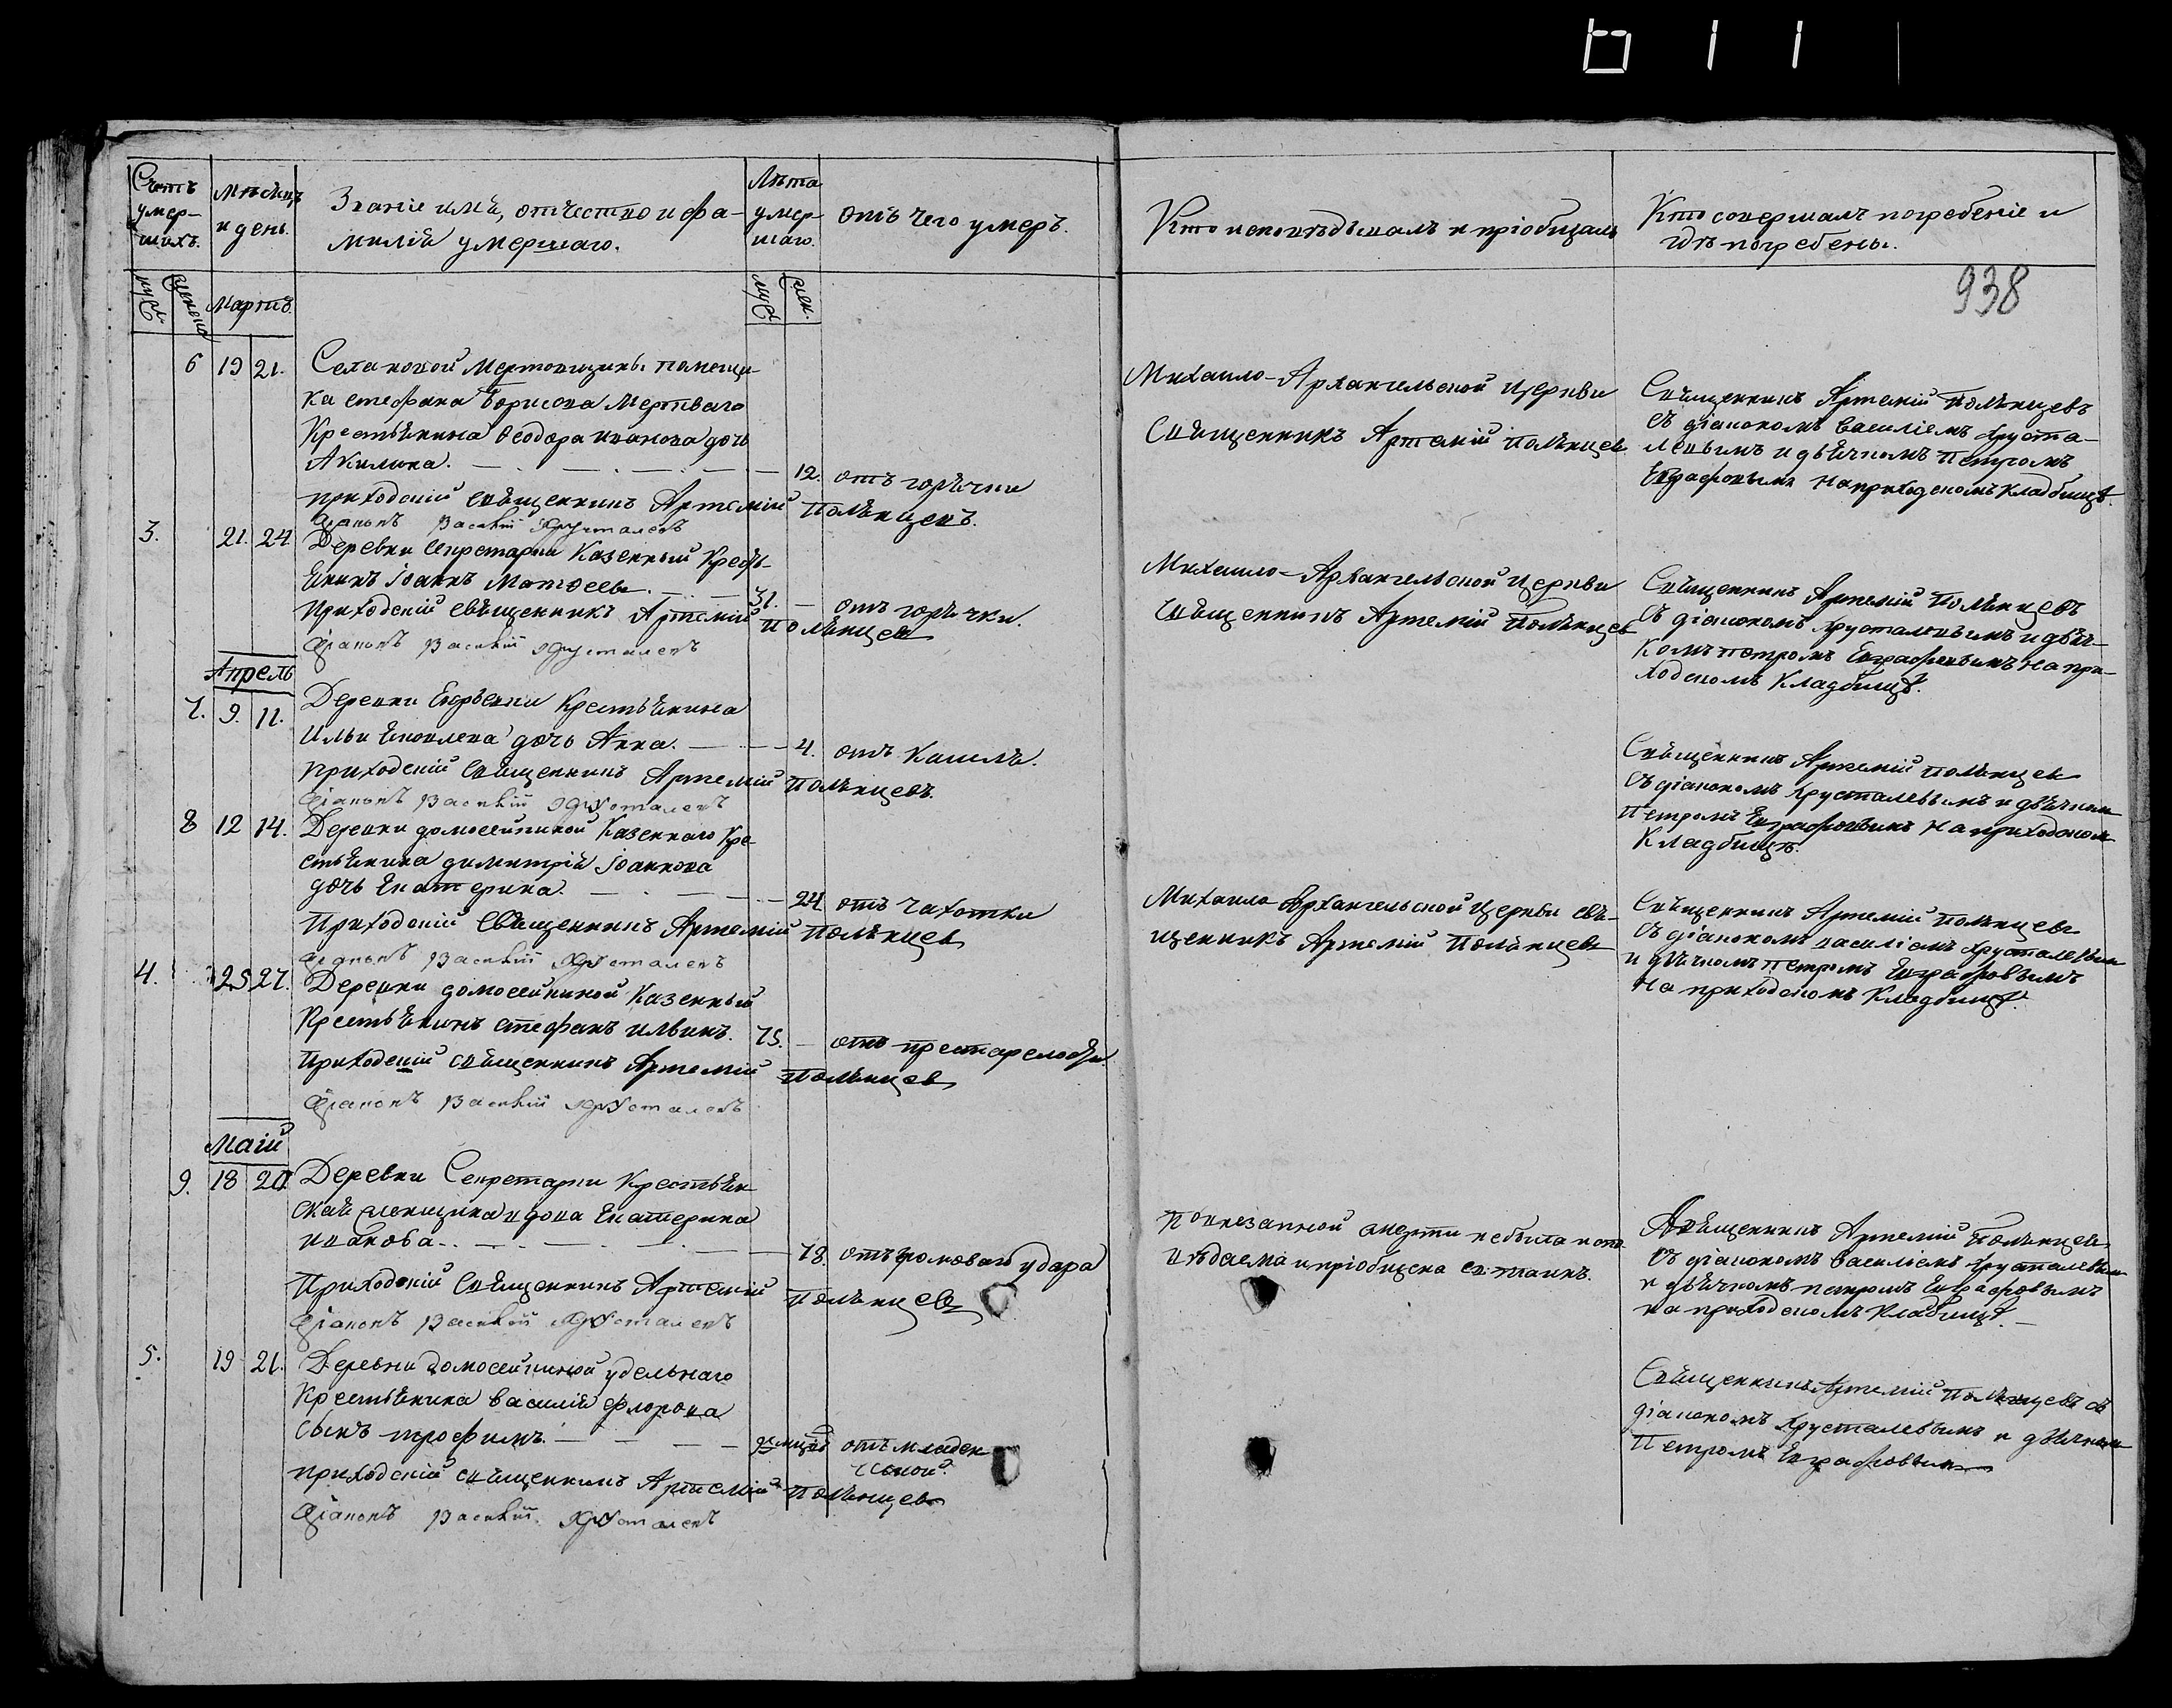 Счетъ умер-шихъ.
Мѣсяцъ и день.
Званіе имя, отчество и фа-
милія умершаго.
Лѣта умер-шаго.
отъ чего умеръ.
Кто исповѣдывалъ и пріобщалъ
Кто совершалъ погребеніе и
гдѣ погребены.
938
муж.
женска
Мартъ.
муж.
жен.
6 19 21. Села новой Мертовщины помещи-
ка стефана Борисова Мертваго
Крестьянина Ѳеодора иванова дочь
Акилина. 12. отъ горячки
приходскій священникъ Артемій Полянцевъ.
Діаконъ Василій Хрусталевъ
Михаило-Архангельской церкви
Священникъ Артемій Полянцев
Священникъ Артемій Полянцевъ
съ діакономъ василіемъ хруста-
левымъ и дьячкомъ петромъ
Евграфовымъ на приходскомъ кладбищѣ.
3. 21. 24. Деревни Секретарки Казенный Кресть-
янинъ іоаннъ Матѳеевъ. 31. отъ горячки.
Приходскій священникъ Артемій Полянцев
Діаконъ Василій Хрусталевъ
Михаило-Архангельской церкви
Священникъ Артемій Полянцев
Священникъ Артемій Полянцевъ
съ діакономъ хрусталевымъ и дьяч-
комъ петромъ Евграфовымъ на при-
ходскомъ кладбищѣ.
Апрель
7. 9. 11. Деревни Крестьянина
Ильи Яковлева дочь Анна. 4. отъ кашля.
Приходскій Священникъ Артемій Полянцевъ.
Діаконъ Василій Хрусталевъ
Священникъ Артемій Полянцев
съ діакономъ хрусталевымъ и дьячкомъ
Петромъ Евграфовымъ на приходскомъ
кладбищѣ.
8 12 14. Деревни домосейкиной Казеннаго Кре-
стьянина димитрія іоаннова
дочь Екатерина. 24 отъ чахотки
Приходскій Священникъ Артемій Полянцев
Діаконъ Василій Хрусталевъ
Михаило-Архангельской церкви свя-
щенникъ Артемій Полянцев
Священникъ Артемій Полянцев
съ діакономъ василіемъ хрусталевым
и дьячкомъ петромъ Евграфовымъ
на приходскомъ кладбищѣ.
4. 25 27. Деревни домосейкиной Казенный
Крестьянинъ стефанъ ильинъ. 75. отъ престарелости.
Приходскій священникъ Артемій Полянцев
Діаконъ Василій Хрусталевъ
Маій
9. 18 20. Деревни Секретарки Крестьян-
ская женщина вдова Екатерина
иванова. 78. отъ громоваго удара
Приходскій Священникъ Артемій Полянцев
Діаконъ Василій Хрусталевъ
По внезапной смерти не была испо-
вѣдаема и пріобщена св: таинъ.
Священникъ Артемій Полянцев
съ діакономъ василіемъ хрусталевым
и дьячкомъ петромъ Евграфовымъ
на приходскомъ кладбищѣ.
5. 19 21. Деревни домосейкиной удельнаго
Крестьянина василія флорова
сынъ трофимъ. отъ младен-
ческой.
приходскій священникъ Артемій Полянцев
Діаконъ Василій Хрусталевъ
Священникъ Артемій Полянцевъ съ
діакономъ хрусталевымъ и дьячком
Петромъ Евграфовым